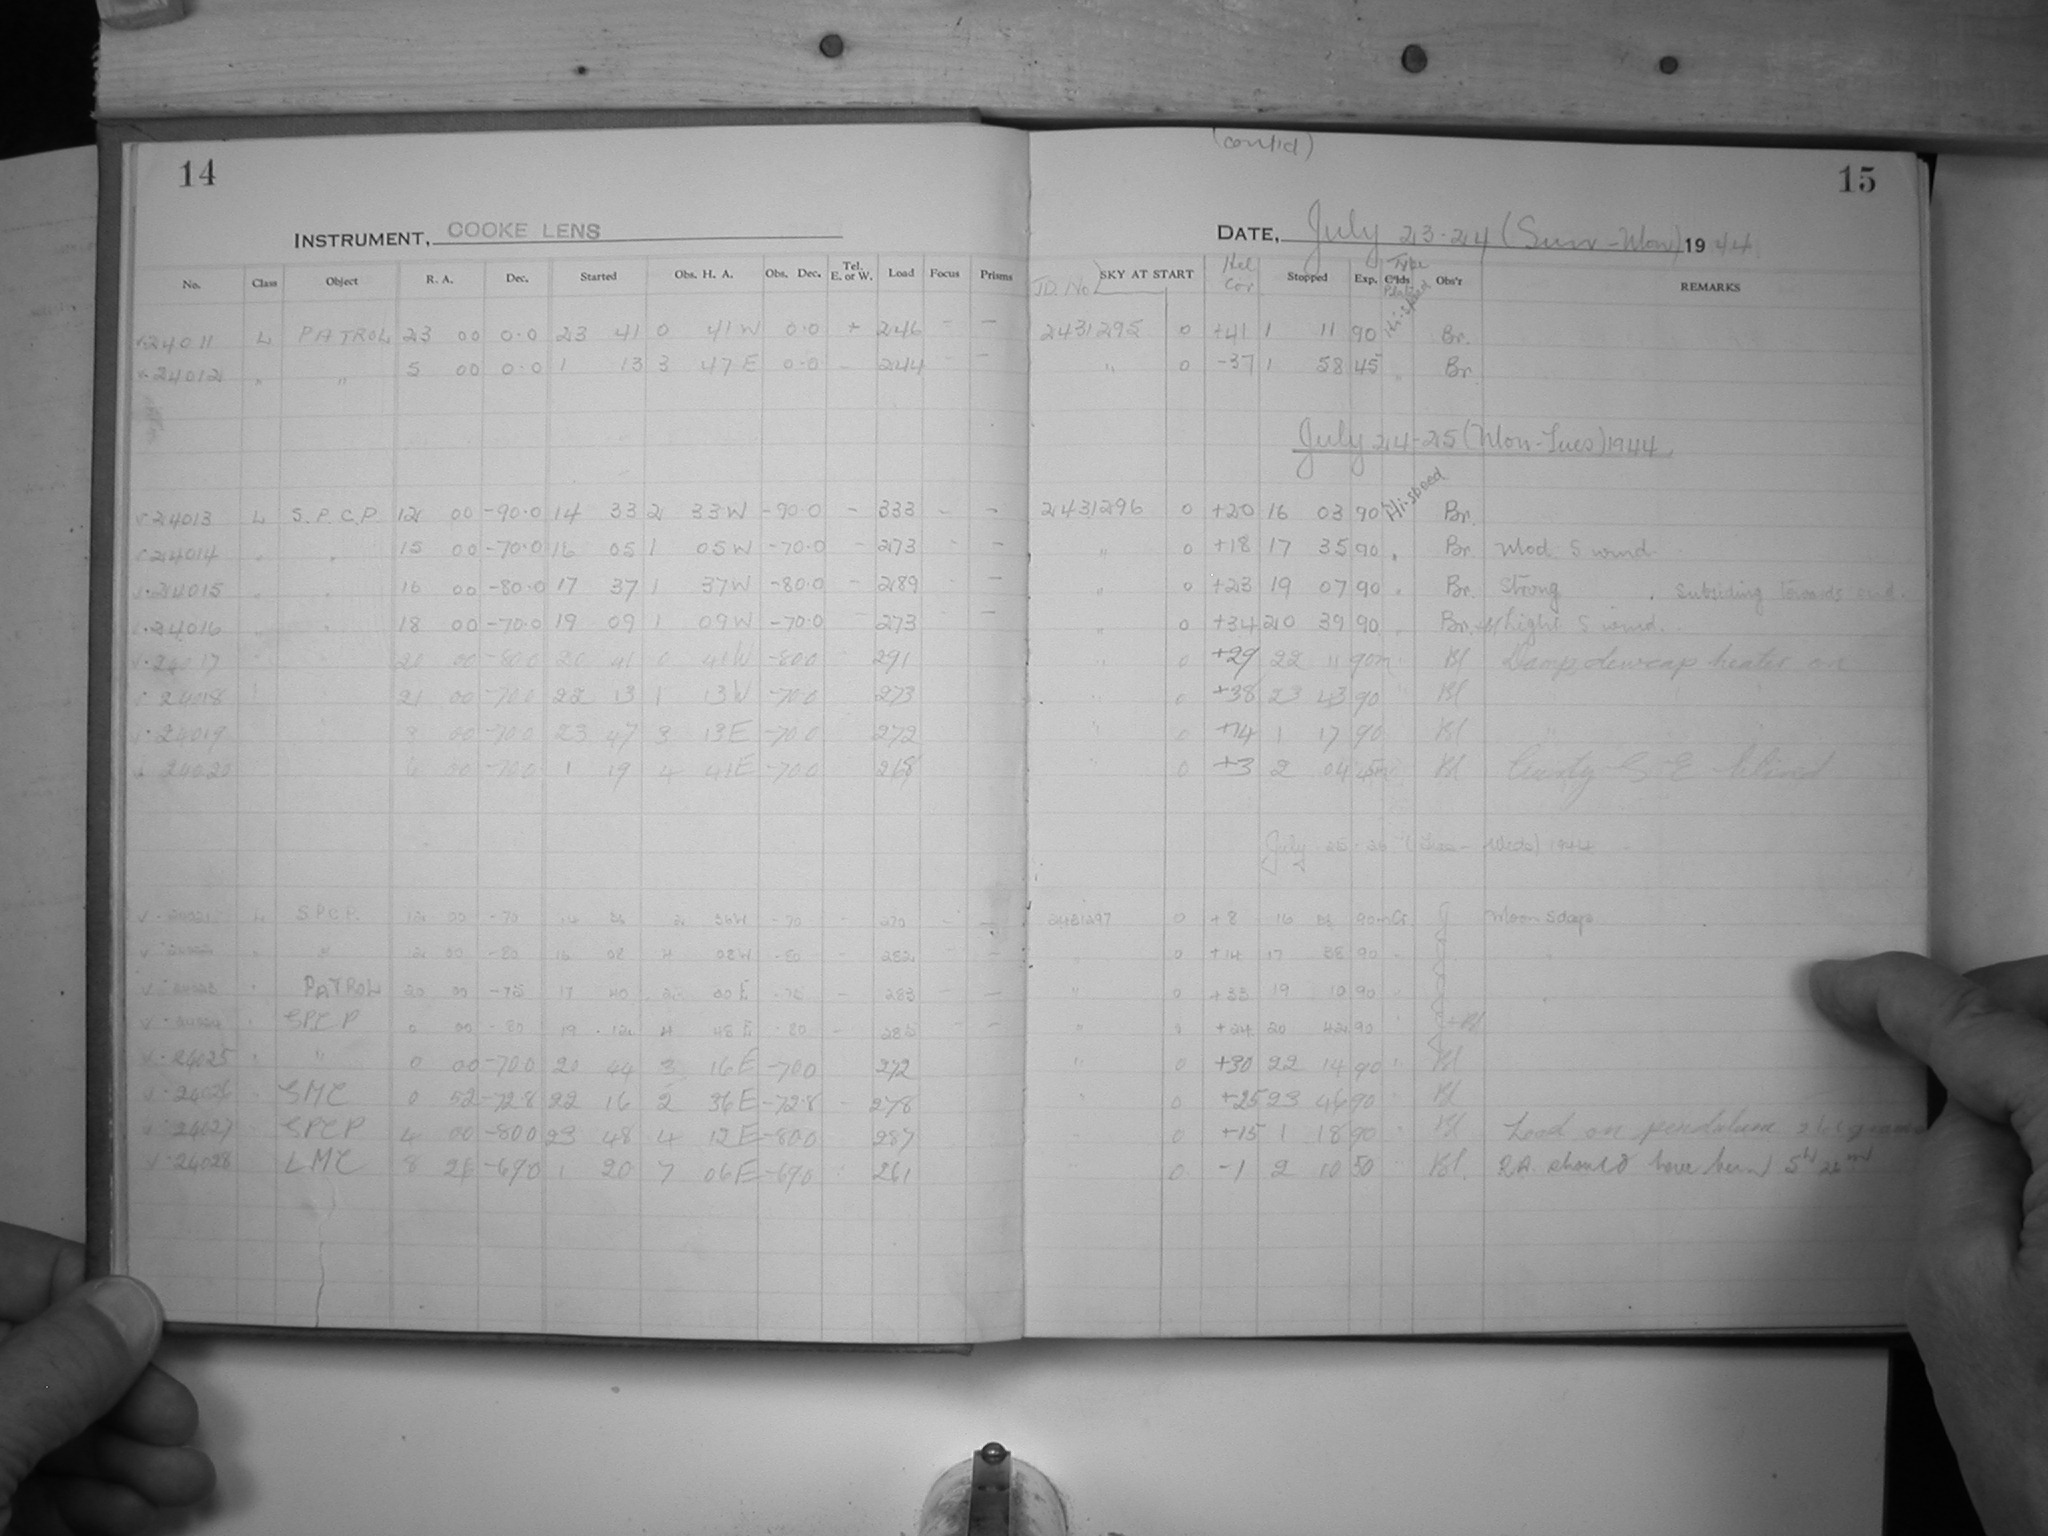 (cont'd)
14 15
INSTRUMENT, COOKE LENS DATE, July 23-24 (Sun-Mon) 1944
No. Class Object R. A. Dec. Started Obs. H. A. Obs. Dec. Tel. E. or W. Load Focus Prisms J.D. No. SKY AT START Hel Cor Stopped Exp. Type C'lds Obs'r REMARKS
24011 L PATROL 23 00 0.0 23 41 0 41W 0.0 + 246 - - 2431295 0 +41 1 11 90 Hi-speed Br.
24012 " " 5 00 0.0 1 13 3 47E 0.0 - 244 - - " 0 -37 1 58 45 " Br.
July 24-25 (Mon-Tues) 1944
24013 L S.P.C.P. 12 00 -90.0 14 33 2 33W -90.0 - 333 - - 2431296 0 +20 16 03 90 Hi-speed Br.
24014 " " 15 00 -70.0 16 05 1 05W -70.0 - 273 - - " 0 +18 17 35 90 " Br. Mod. S wind.
24015 " " 16 00 -80.0 17 37 1 37W -80.0 - 289 - - " 0 +23 19 07 90 " Br. Strong " subsiding towards end.
24016 " " 18 00 -70.0 19 09 1 09W -70.0 - 273 - - " 0 +34 20 39 90 " Br. Light S wind.
24017 20 00 -80.0 20 41 0 41W -80.0 291 " 0 +29 22 11 90m Bl Damp, dewcap heater on
24018 21 00 -70.0 22 13 1 13W -70.0 273 " 0 +38 23 43 90 Bl
24019 3 00 -70.0 23 47 3 13E -70.0 272 " 0 +14 1 17 90 Bl "
24020 6 00 -70.0 1 19 4 41E -70.0 268 " 0 +3 2 04 45m Bl Gusty S E Wind
July 25-26 (Tues-Weds) 1944
24021 L S.P.C.P. 12 00 -70 14 2 36W -70 - 270 - - 2431297 0 +8 16 90m Cr. J Moon 5 days
" " 12 00 -80 16 08 4 08W -80 - 282 - 0 +14 17 38 90 " J "
24023 " PATROL 20 00 -75 17 40 2 20E -75 - 283 - - " 0 +33 19 10 90 " J "
24024 " SPCP 0 00 -80 19 12 4 48E -80 - 285 - - " 0 +24 20 42 90 J+Bl
24025 " " 0 00 -70.0 20 44 3 16E -70.0 272 " 0 +30 22 14 90 " Bl
24026 " SMC 0 52 -72.8 22 16 2 36E -72.8 278 " 0 +25 23 46 90 Bl
24027 " SPCP 4 00 -80.0 23 48 4 12E -80.0 287 0 +15 1 18 90 Bl Load on pendulum
24028 LMC 8 26 -69.0 1 20 7 06E -69.0 261 0 -1 2 10 50 Bl. R.A. should have been 5h 26m